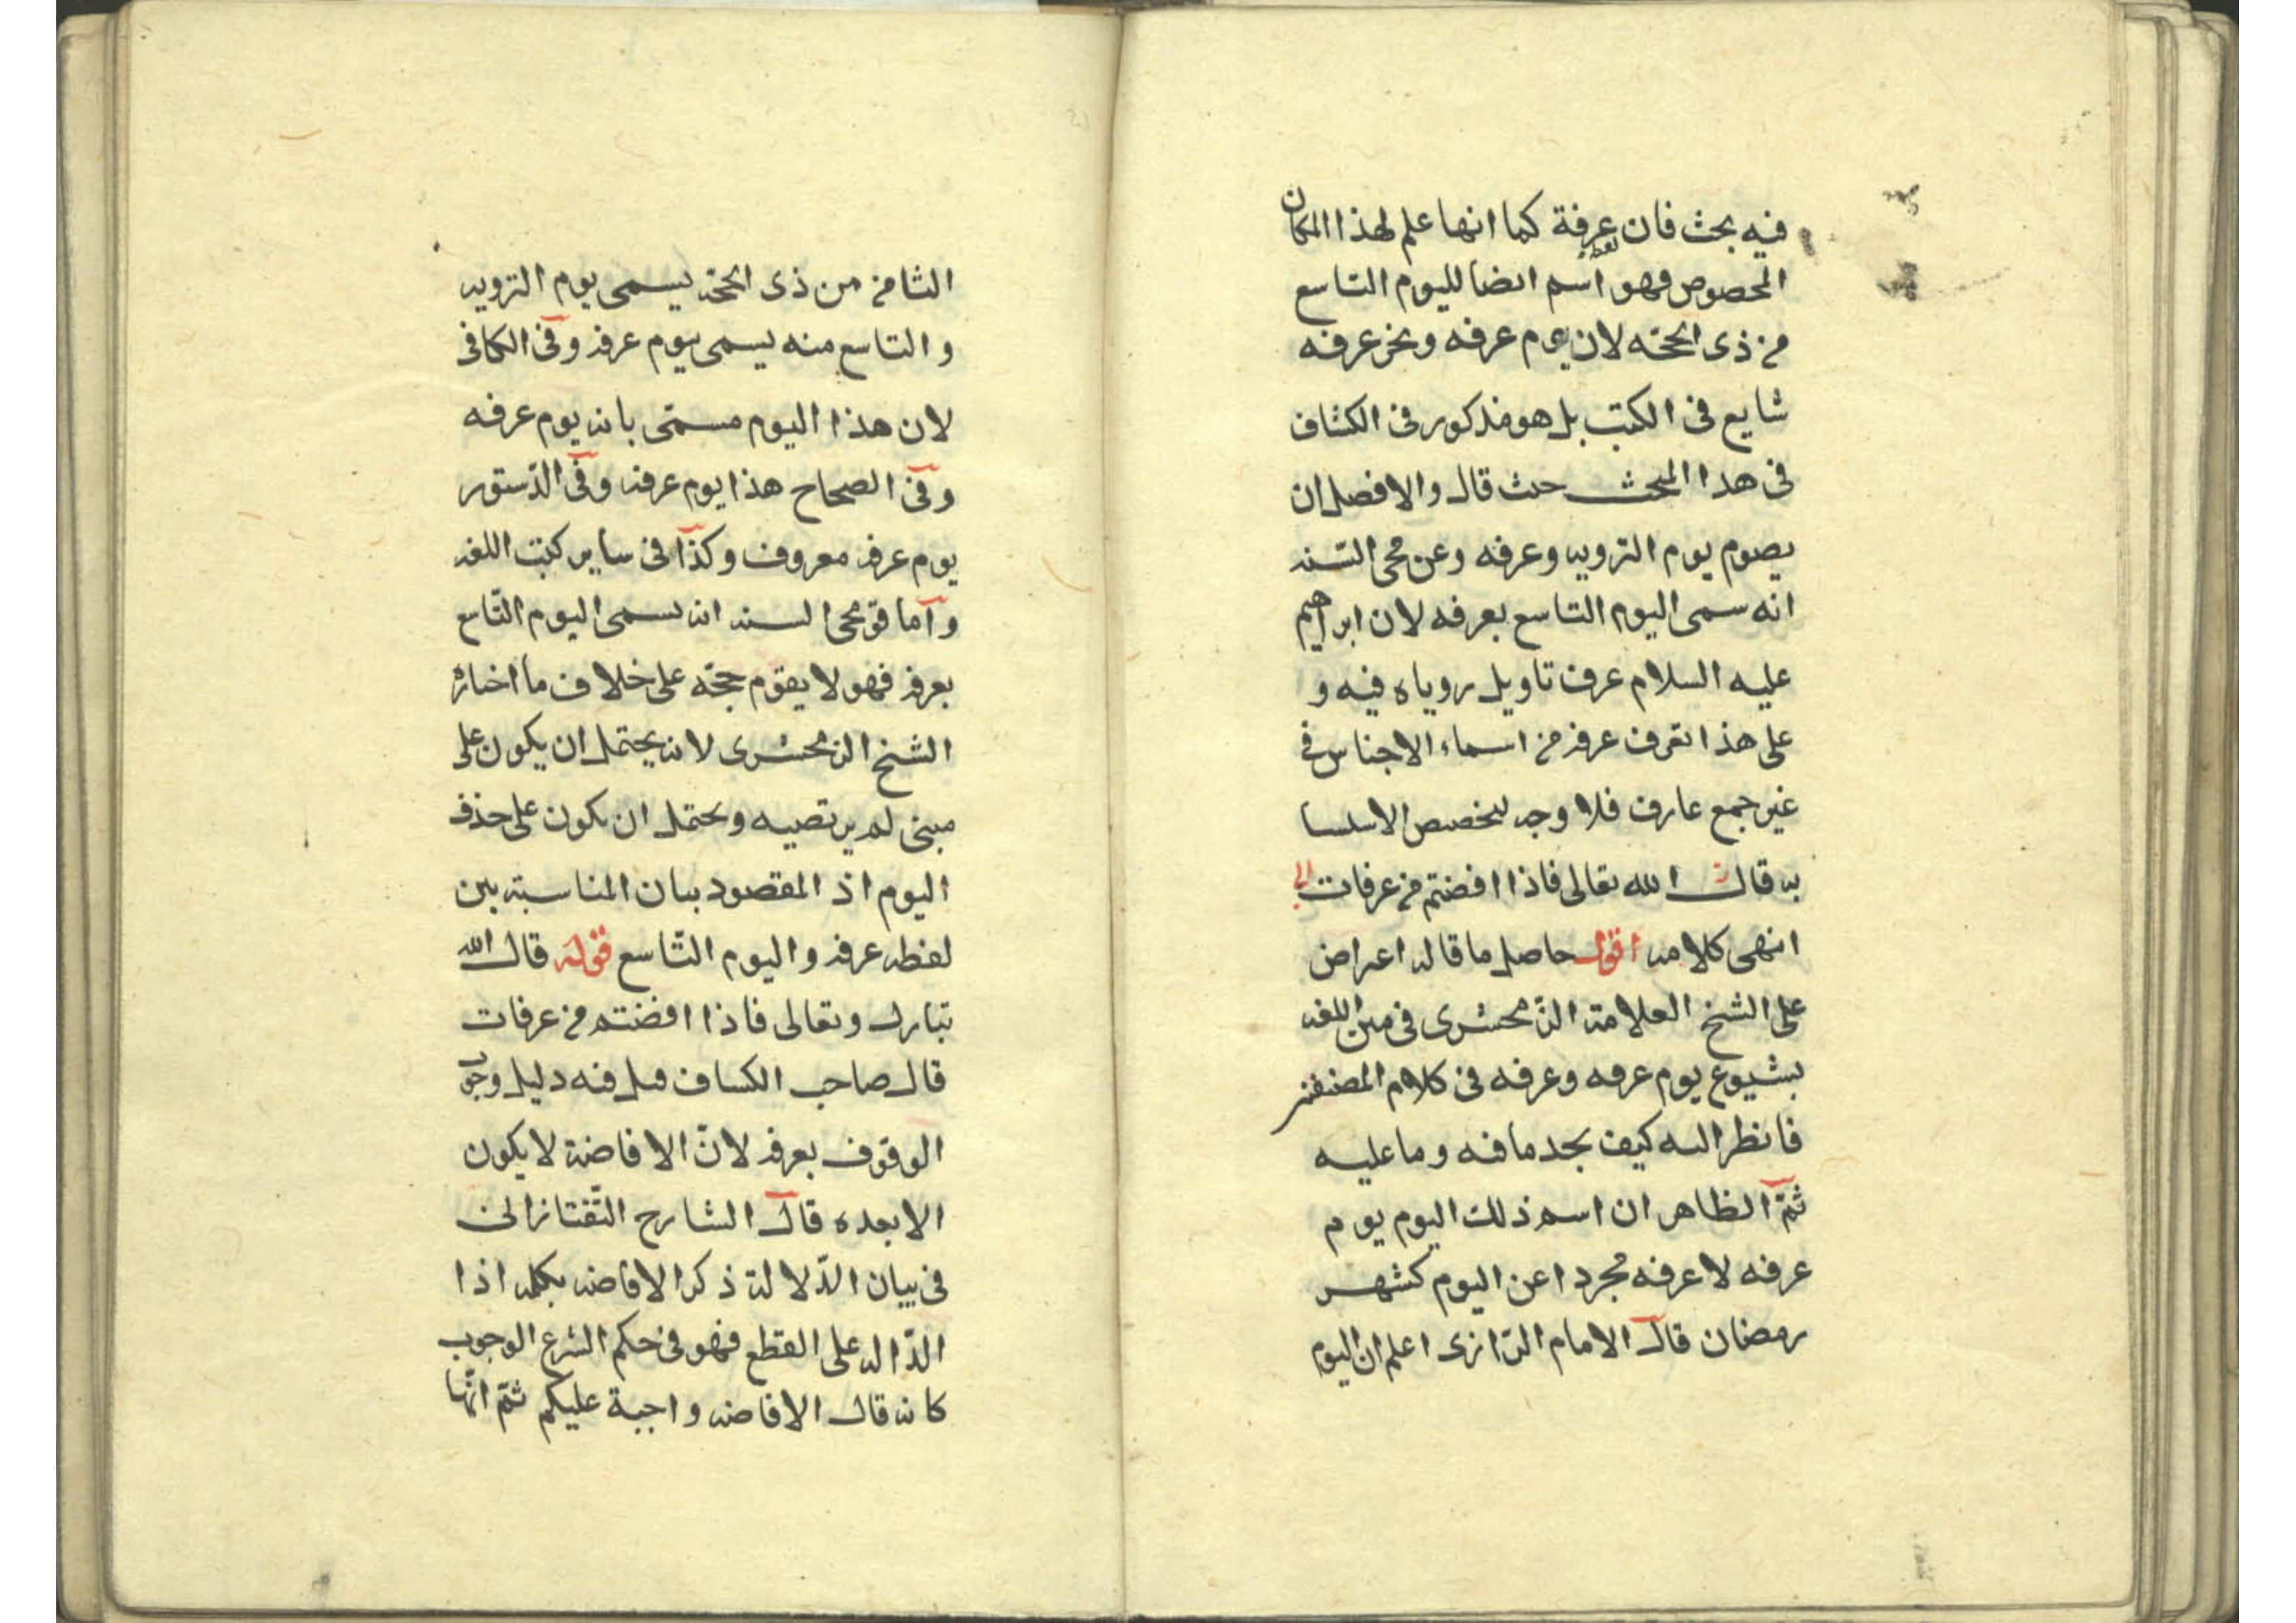 فيه بحث فان عرفة كما انها علم لهذا المكان
المخصوص فهو اسم ايضا لليوم التاسع
من ذى الحجة لان يوم عرفه ونحن عرفه
شايع فى الكتب بل هو مذكور فى الكشاف
فى هذا المبحث حيث قال والافضل ان
يصوم يوم التروية وعرفه وعن محى السنه
انه سمى اليوم التاسع بعرفه لان ابراهيم
عليه السلام عرف تاويل روياه فيه و
على هذا تعرف عرفة من اسماء الاجناس فى
غير جمع عارف فلا وجه لتخصيص الاسلسا
به قال الله تعالى فاذا افضتم من عرفات الى
انتهى كلامه اقول حاصل ما قاله اعتراض
على الشيخ العلامة الزمخشرى فى متن اللغه
بشيوع يوم عرفه وعرفه فى كلام المصنفين
فانظر اليه كيف تجد ما فيه وما عليه
ثم الظاهر ان اسم ذلك اليوم يوم
عرفه لا عرفه مجردا عن اليوم كشهر
رمضان قال الامام الرازى اعلم ان اليوم
الثامن من ذى الحجة يسمى يوم التروية
والتاسع منه يسمى بيوم عرفة وفى الكافى
لان هذا اليوم مسمى بانه يوم عرفه
وفى الصحاح هذا يوم عرفة وفى الدستور
يوم عرفة معروف وكذا فى ساير كتب اللغه
واما قو محى السنه انه يسمى اليوم التاسع
بعرفة فهو لا يقوم حجة على خلاف ما اختاره
الشيخ الزمخشرى لانه يحتمل ان يكون على
مبنى لم يرتضيه ويحتمل ان يكون على حذف
اليوم اذ المقصود بيان المناسبة بين
لفظه عرفة واليوم التاسع قوله قال الله
تبارك وتعالى فاذا افضتم من عرفات
قال صاحب الكشاف قيل فيه دليل وجو
الوقوف بعرفة لان الافاضة لا يكون
الا بعده قال الشارح التفتازانى
فى بيان الدلالة ذكر الافاضه بكلمه اذا
الدالة على القطع فهو فى حكم الشرع الوجوب
كانه قال الافاضه واجبة عليكم ثم انها